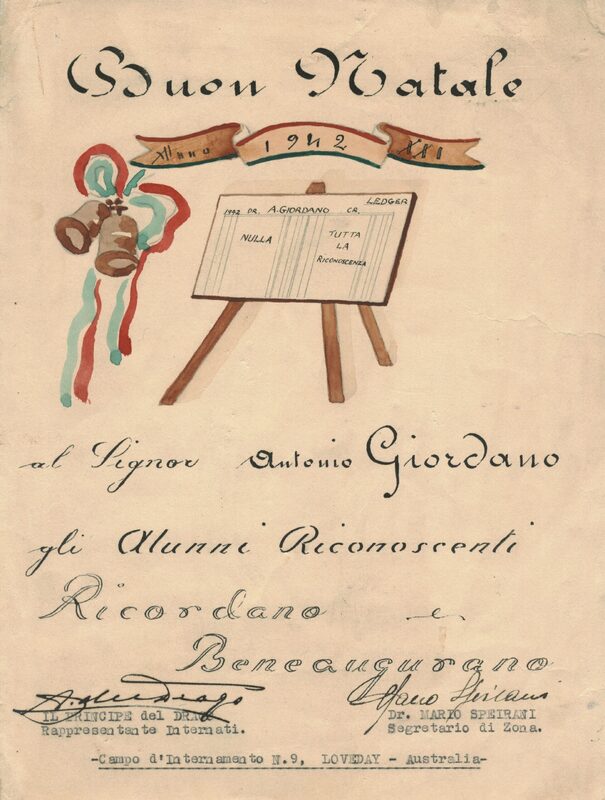 Buon Natale
Anno 1942 XXI
LEDGER
1942 DR. A. GIORDANO CR.
NULLA
TUTTA
LA
RICONOSCENZA
al Signor Antonio Giordano
gli Alunni Riconoscenti
Ricordano e
Beneaugurano
Mario Speirani
IL PRINCIPE del DRAGO
Dr. MARIO SPEIRANI
Rappresentante Internati.
Segretario di Zona.
-Campo d'Internamento N.9, LOVEDAY - Australia-